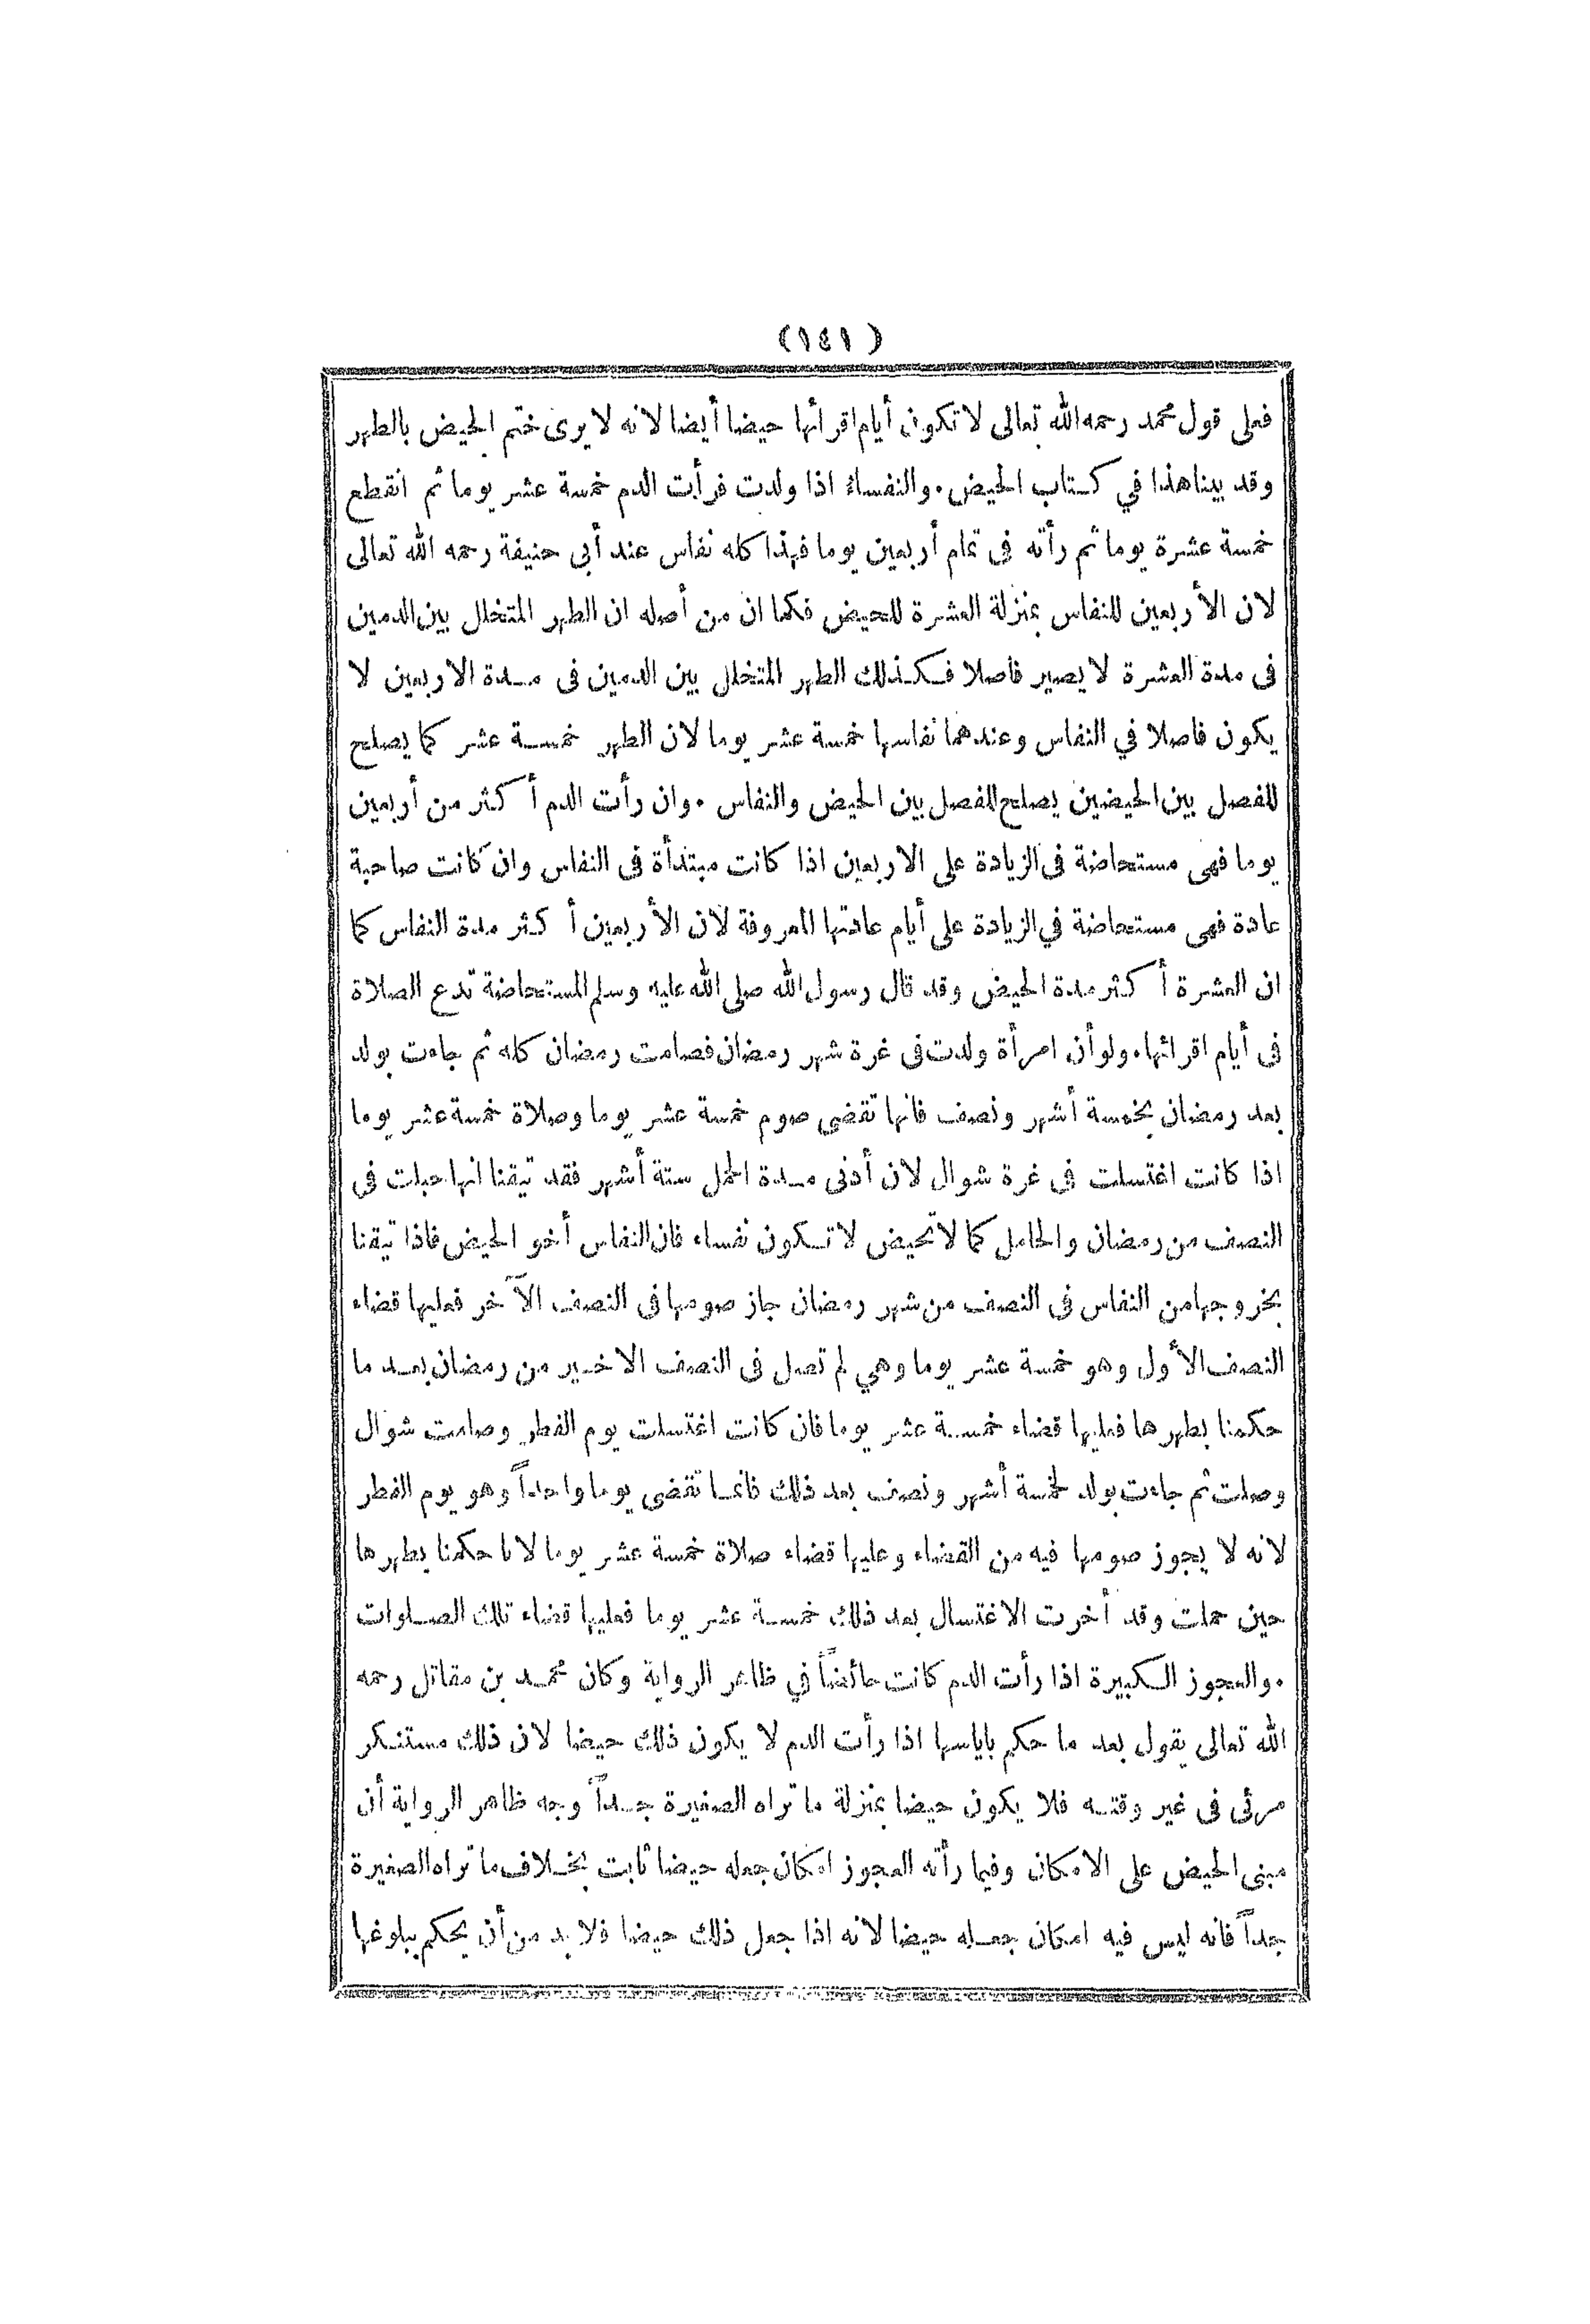 (١٤١)
فعلى قول محمد رحمه الله تعالى لا تكون أيام اقرائها حيضا أيضا لانه لا يرى ختم الحيض بالطهر
وقد بينا هذا في كتاب الحيض. والنفساء اذا ولدت فرأت الدم خمسة عشر يوما ثم انقطع
خمسة عشرة يوما ثم رأته فى تمام أربعين يوما فهذا كله نفاس عند أبى حنيفة رحمه الله تعالى
لان الأربعين للنفاس بمنزلة العشرة للحيض فكما ان من أصله ان الطهر المتخلل بين الدمين
فى مدة العشرة لا يصير فاصلا فكذلك الطهر المتخلل بين الدمين فى مدة الاربعين لا
يكون فاصلا في النفاس وعندهما نفاسها خمسة عشر يوما لان الطهر خمسة عشر كما يصلح
للفصل بين الحيضين يصلح للفصل بين الحيض والنفاس. وان رأت الدم أكثر من أربعين
يوما فهى مستحاضة فى الزيادة على الاربعين اذا كانت مبتدأة فى النفاس وان كانت صاحبة
عادة فهى مستحاضة في الزيادة على أيام عادتها المعروفة لان الأربعين أكثر مدة النفاس كما
ان العشرة أكثر مدة الحيض وقد قال رسول الله صلى الله عليه وسلم المستحاضة تدع الصلاة
فى أيام اقرائها. ولو أن امرأة ولدت فى غرة شهر رمضان فصامت رمضان كله ثم جاءت بولد
بعد رمضان بخمسة أشهر ونصف فانها تقضى صوم خمسة عشر يوما وصلاة خمسة عشر يوما
اذا كانت اغتسلت فى غرة شوال لان أدنى مدة الحمل ستة أشهر فقد تيقنا انها حبلت فى
النصف من رمضان والحامل كما لا تحيض لا تكون نفساء فان النفاس أخو الحيض فاذا تيقنا
بخروجها من النفاس فى النصف من شهر رمضان جاز صومها فى النصف الآخر فعليها قضاء
النصف الأول وهو خمسة عشر يوما وهي لم تصل فى النصف الاخير من رمضان بعد ما
حكمنا بطهرها فعليها قضاء خمسة عشر يوما فان كانت اغتسلت يوم الفطر وصامت شوال
وصلت ثم جاءت بولد لخمسة أشهر ونصف بعد ذلك فانما تقضى يوما واحداً وهو يوم الفطر
لانه لا يجوز صومها فيه من القضاء وعليها قضاء صلاة خمسة عشر يوما لانا حكمنا بطهرها
حين حملت وقد أخرت الاغتسال بعد ذلك خمسة عشر يوما فعليها قضاء تلك الصلوات
. والعجوز الكبيرة اذا رأت الدم كانت حائضاً في ظاهر الرواية وكان محمد بن مقاتل رحمه
الله تعالى يقول بعد ما حكم باياسها اذا رأت الدم لا يكون ذلك حيضا لان ذلك مستنكر
مرئى فى غير وقته فلا يكون حيضا بمنزلة ما تراه الصغيرة جداً وجه ظاهر الرواية أن
مبنى الحيض على الامكان وفيما رأته العجوز امكان جعله حيضا ثابت بخلاف ما تراه الصغيرة
جداً فانه ليس فيه امكان جعله حيضا لانه اذا جعل ذلك حيضا فلا بد من أن يحكم ببلوغها